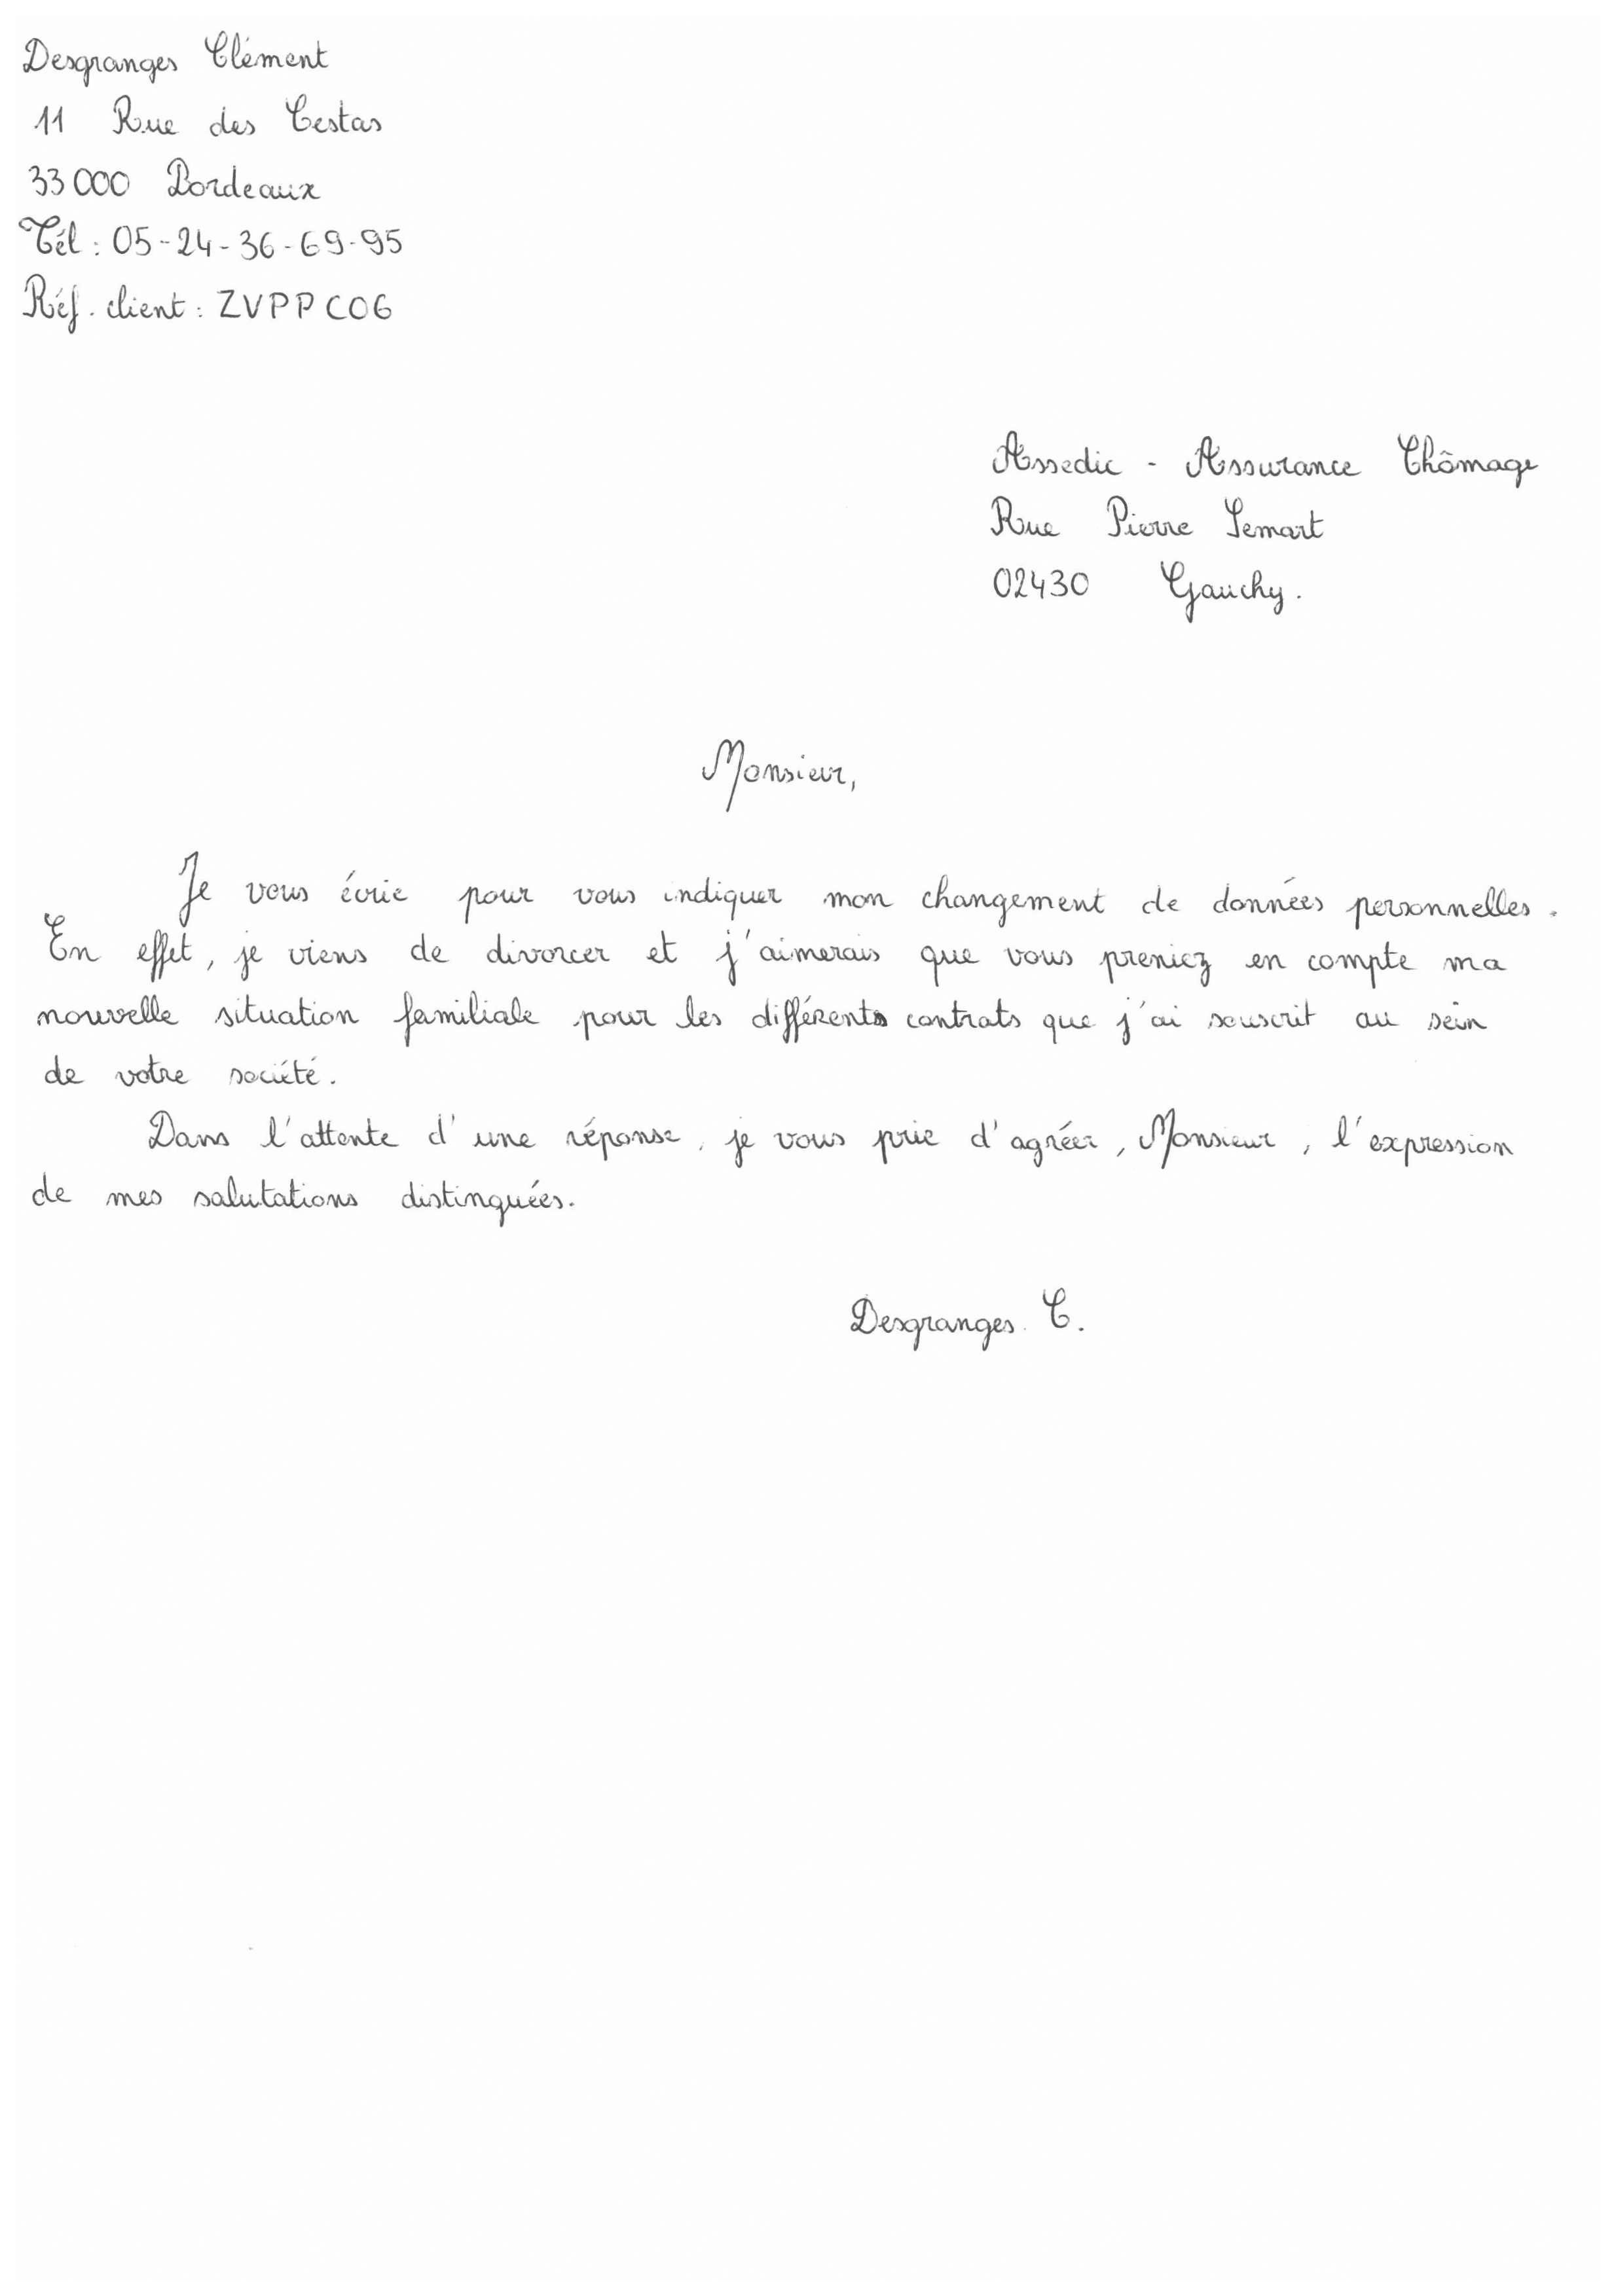 Desgranges Clément
11 Rue des Cestas
33000 Bordeaux
Tél : 05-24-36-69-95
Réf. client : ZVPPC06
Assedic - Assurance Chômage
Rue Pierre Semart
02430 Gauchy.
Monsieur,
Je vous écrie pour vous indiquer mon changement de données personnelles.
En effet, je viens de divorcer et j'aimerais que vous preniez en compte ma
nouvelle situation familiale pour les différents contrats que j'ai souscrit au sein
de votre société.
Dans l'attente d'une réponse, je vous prie d'agréer, Monsieur, l'expression
de mes salutations distinguées.
Desgranges C.